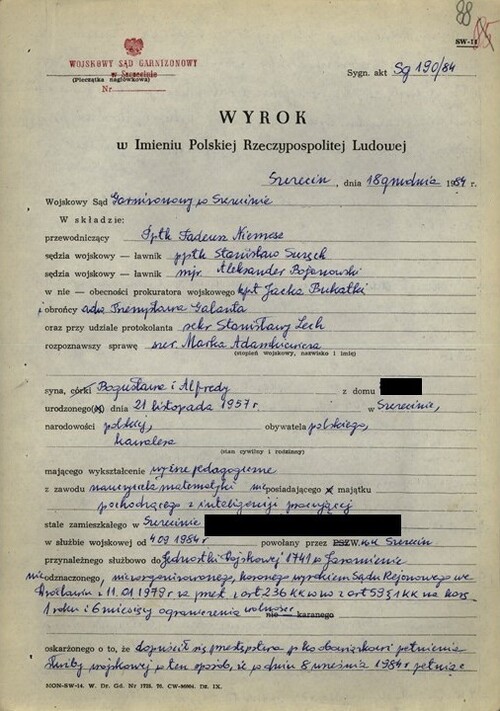 88
SW-14
WOJSKOWY SĄD GARNIZONOWY
w Szczecinie
(Pieczątka nagłówkowa)
Nr
Sygn. akt Sg 190/84
WYROK
w Imieniu Polskiej Rzeczypospolitej Ludowej
Szczecin, dnia 18 grudnia 1984 r.
Wojskowy Sąd Garnizonowy w Szczecinie
W składzie:
przewodniczący ppłk Tadeusz Niemesz
sędzia wojskowy — ławnik ppłk Stanisław
sędzia wojskowy — ławnik mjr Aleksander Bojanowski
w nie — obecności prokuratora wojskowego kpt Jacka Bukatki
i obrońcy adw Przemysława Galanta
oraz przy udziale protokolanta sekr Stanisławy Lech
rozpoznawszy sprawę szer Marka Adamkiewicza
(stopień wojskowy, nazwisko i imię)
syna, córki Bogusława i Alfredy z domu
urodzonego(x) dnia 21 listopada 1957 r. w Szczecinie,
narodowości polskiej, obywatela polskiego,
kawalera
(stan cywilny i rodzinny)
mającego wykształcenie wyższe pedagogiczne
z zawodu nauczyciela matematyki nieposiadającego majątku
pochodzącego z inteligencji pracującej
stale zamieszkałego w Szczecinie
w służbie wojskowej od 4.09 1984 r. powołany przez WKU Szczecin
przynależnego służbowo do Jednostki Wojskowej 1741 w
nieodznaczonego, niezorganizowanego, karanego wyrokiem Sądu Rejonowego we
Wrocławiu z 11.01 1979 r za przest. z art 236 KK w zw z art 59 § 1 KK na karę
1 roku i 6 miesięcy ograniczenia wolności
nie — karanego
oskarżonego o to, że dopuścił się przestępstwa p-ko obowiązkowi pełnienia
służby wojskowej w ten sposób, że w dniu 8 września 1984 r pełniąc
MON-SW-14. W. Dr. Gd. Nr 1728. 76. CW-96804. Dz. IX.